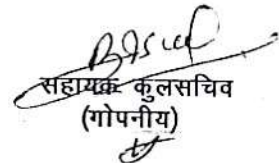 सहायक कुलसचिव
(गोपनीय)